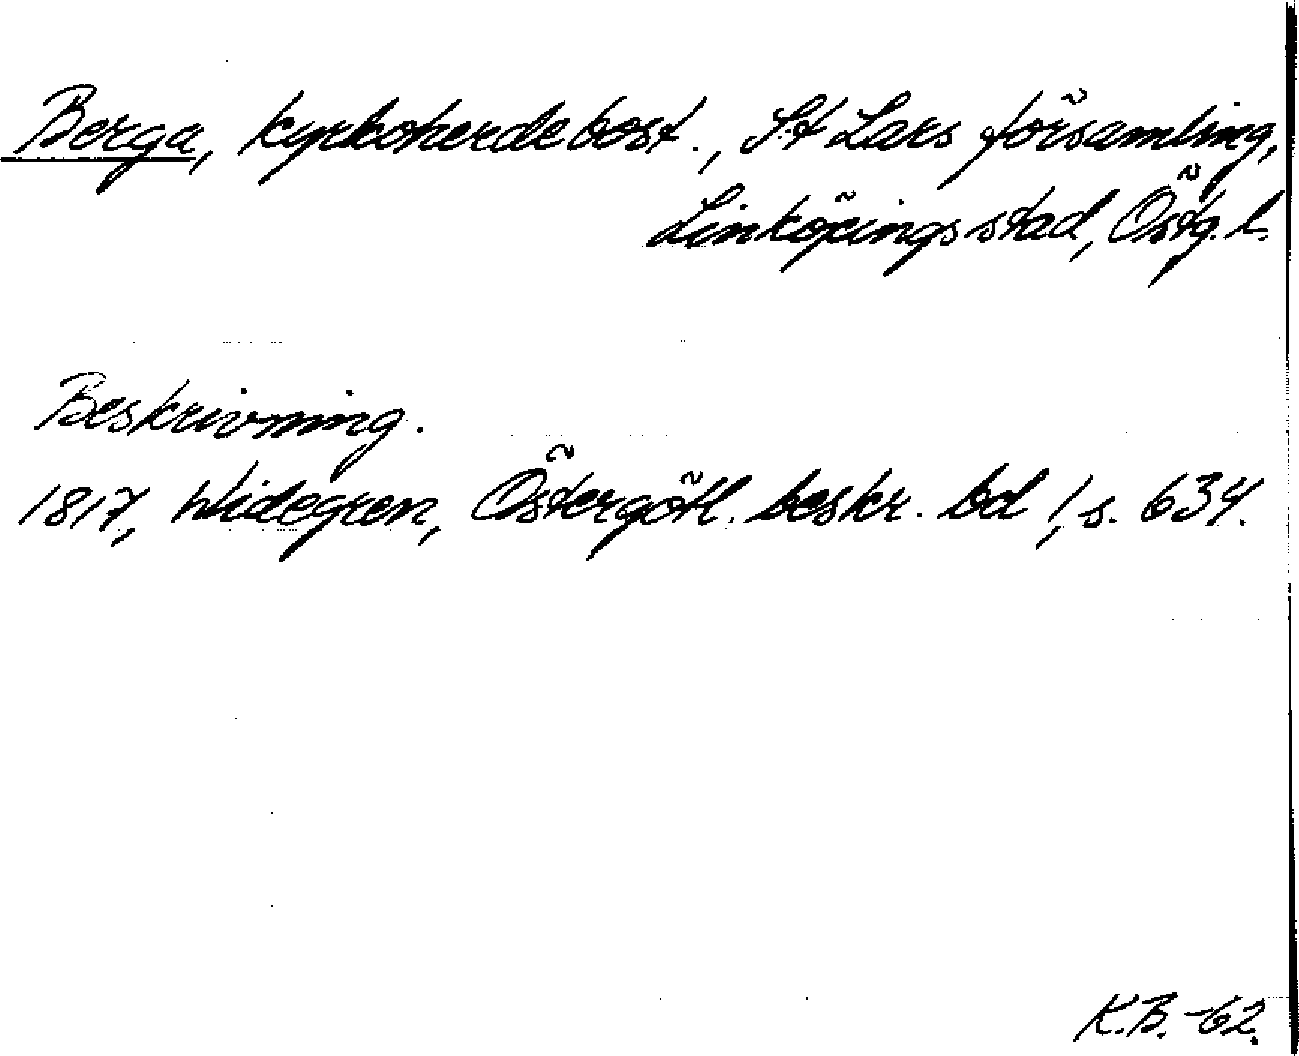 Berga, kyrkoherdebost., S:t Lars församling,
Linköpings stad, Östg. l.
Beskrivning.
1817, Widegren, Östergötl. beskr. bd 1, s. 634.
K.B. -62.